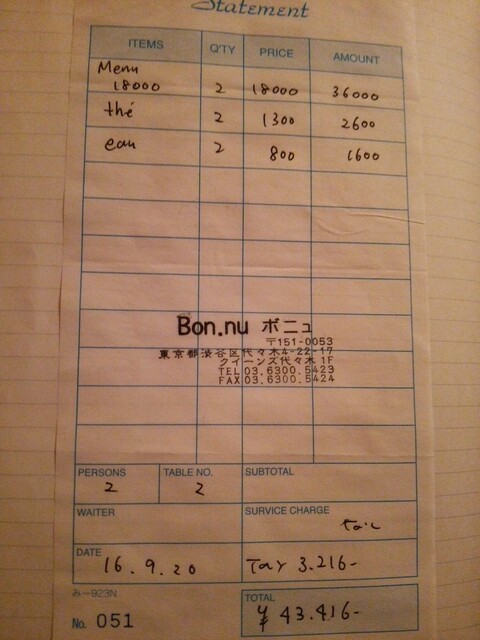 Statement
ITEMS Q'TY PRICE AMOUNT
Menu
18000 2 18000 36000
thé 2 1300 2600
eau 2 800 1600
Bon.nu ボニュ
〒151-0053
東京都渋谷区代々木4-22-17
クイーンズ代々木 1F
TEL 03.6300.5423
FAX 03.6300.5424
PERSONS TABLE NO. SUBTOTAL
2 2
WAITER SURVICE CHARGE
DATE
16.9.20 Tax 3.216-
み-923N TOTAL
No. 051 ¥ 43.416-